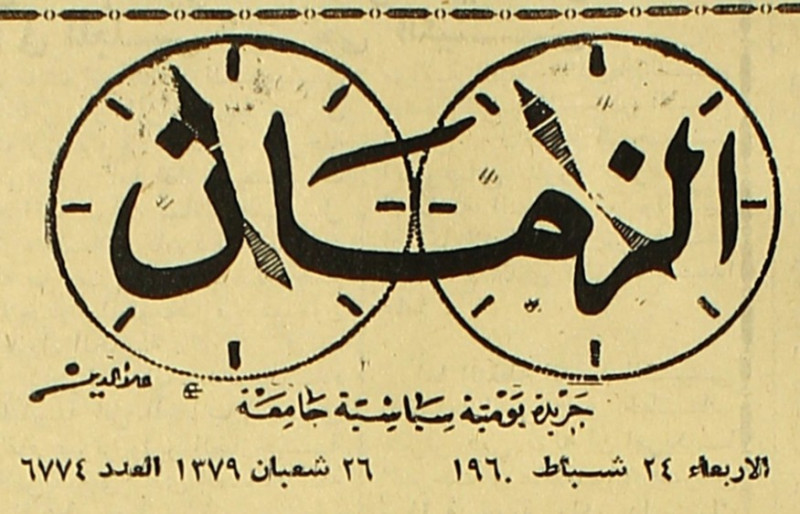 الزمان
علاء الدين
جريدة يومية سياسية جامعة
الاربعاء ٢٤ شباط ١٩٦٠ ٢٦ شعبان ١٣٧٩ العدد ٦٧٧٤